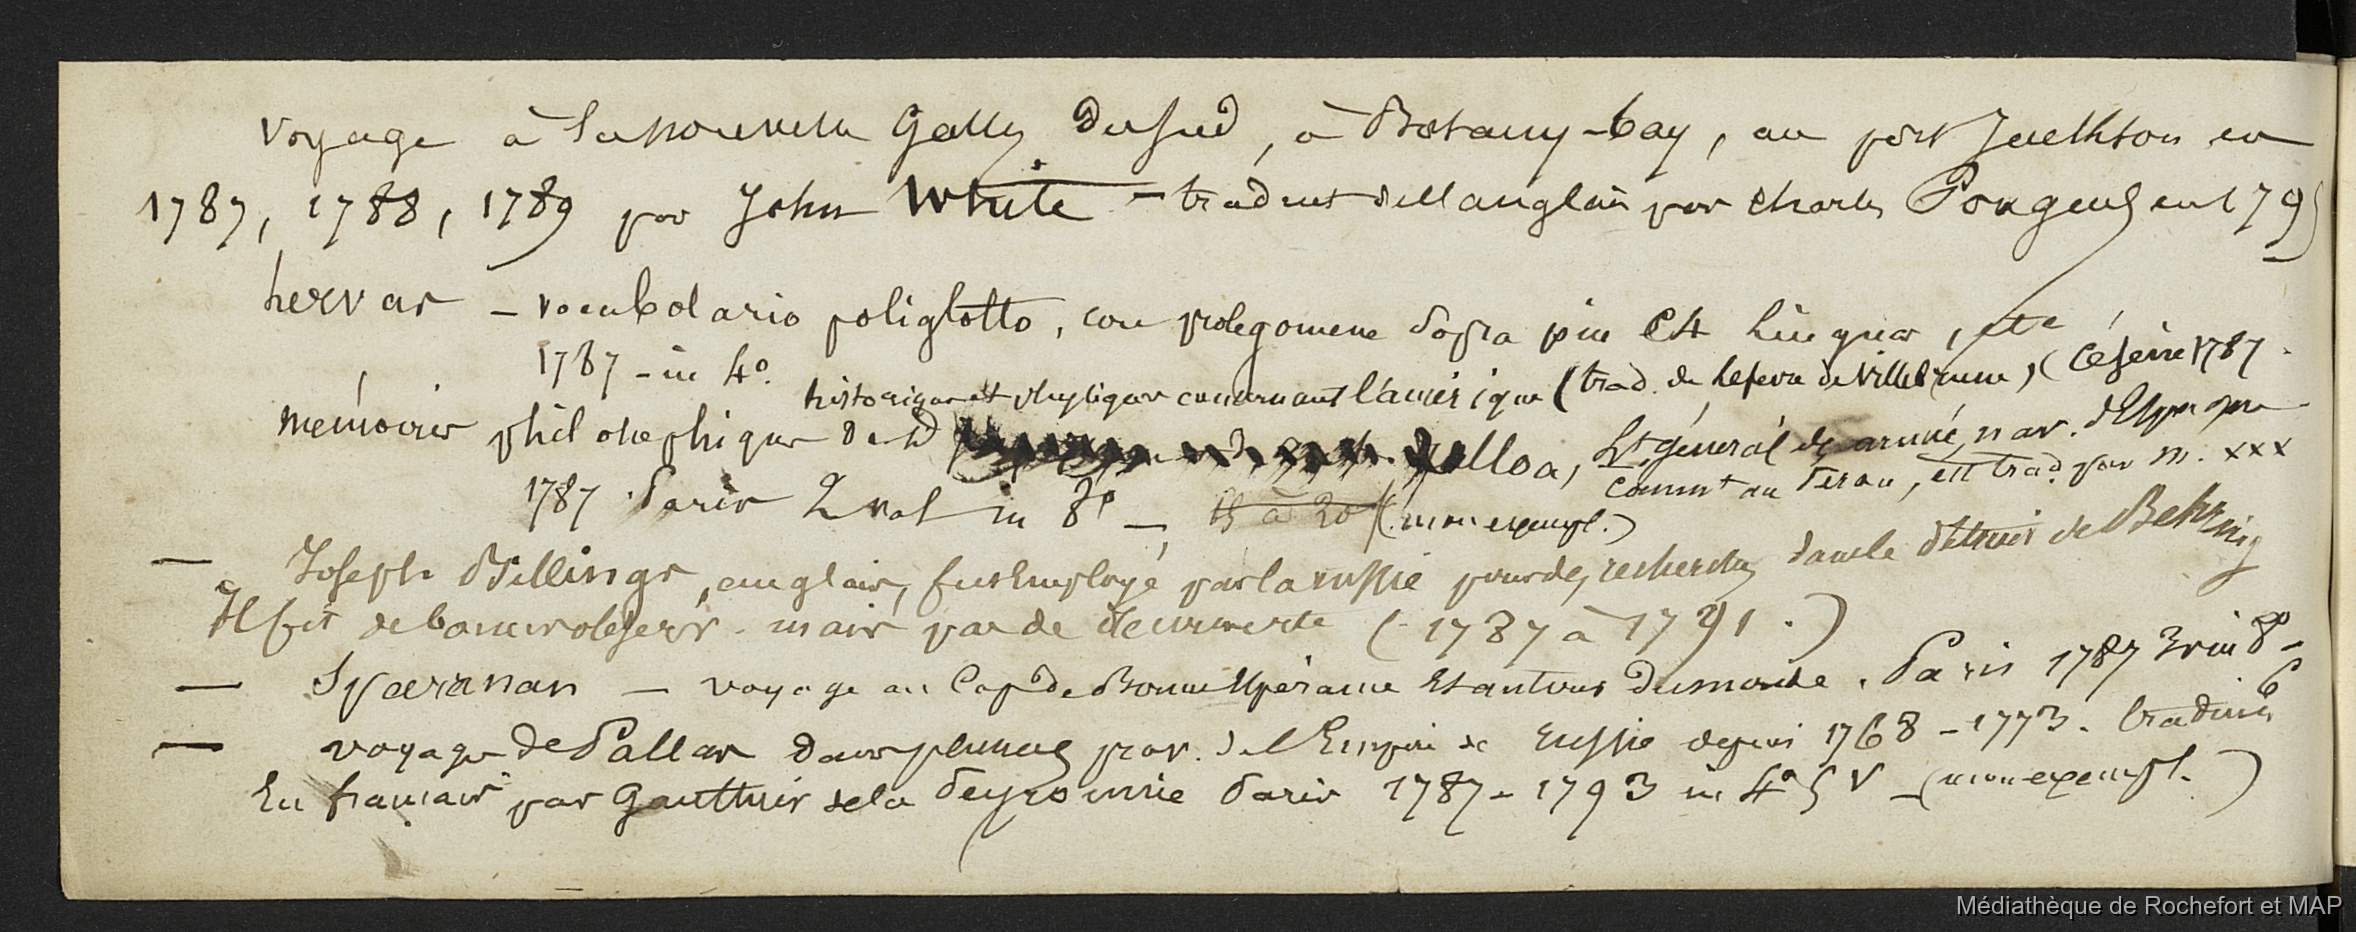 voyage à la nouvelle Galles du sud, à Botany-bay, au port Jackson en
1787, 1788, 1789 par John White — traduit de l'anglais par Charles Pougens en 1795
hervas — vocabolario poliglotto, con prolegomene sopra piu CL lingue, etc,
1787 - in 4°. (Cesene 1787.
historiques et physiques concernant l'amérique (trad. de Lefevre de Villebrune)
mémoires philosophiques de d ulloa, Lt général des armées nav. d'Espagne
commt au Perou, est trad par m. xxx
1787 Paris 2 vol in 8° — 15 à 20 f (mon exempl.)
— Joseph Billings, anglais, fut employé par la russie pour des recherches dans le détroit de Behring
Il fit de bonnes observ. mais pas de découverte (1787 à 1791.)
— Sparrman — voyage au Cap de Bonne Espérance et autour du monde. Paris 1787 3 v in 8°
— voyage de Pallas dans plusieurs prov. de l'Empire de russie depuis 1768 - 1773. traduits
En français par Gauthier de la Peyronnie Paris 1787 - 1793 in 4° 5 v — (mon exempl.)
Médiathèque de Rochefort et MAP